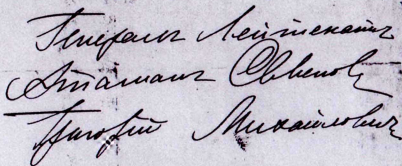 Генералъ Лейтенантъ
Атаманъ Семеновъ
Григорій Михайловичъ